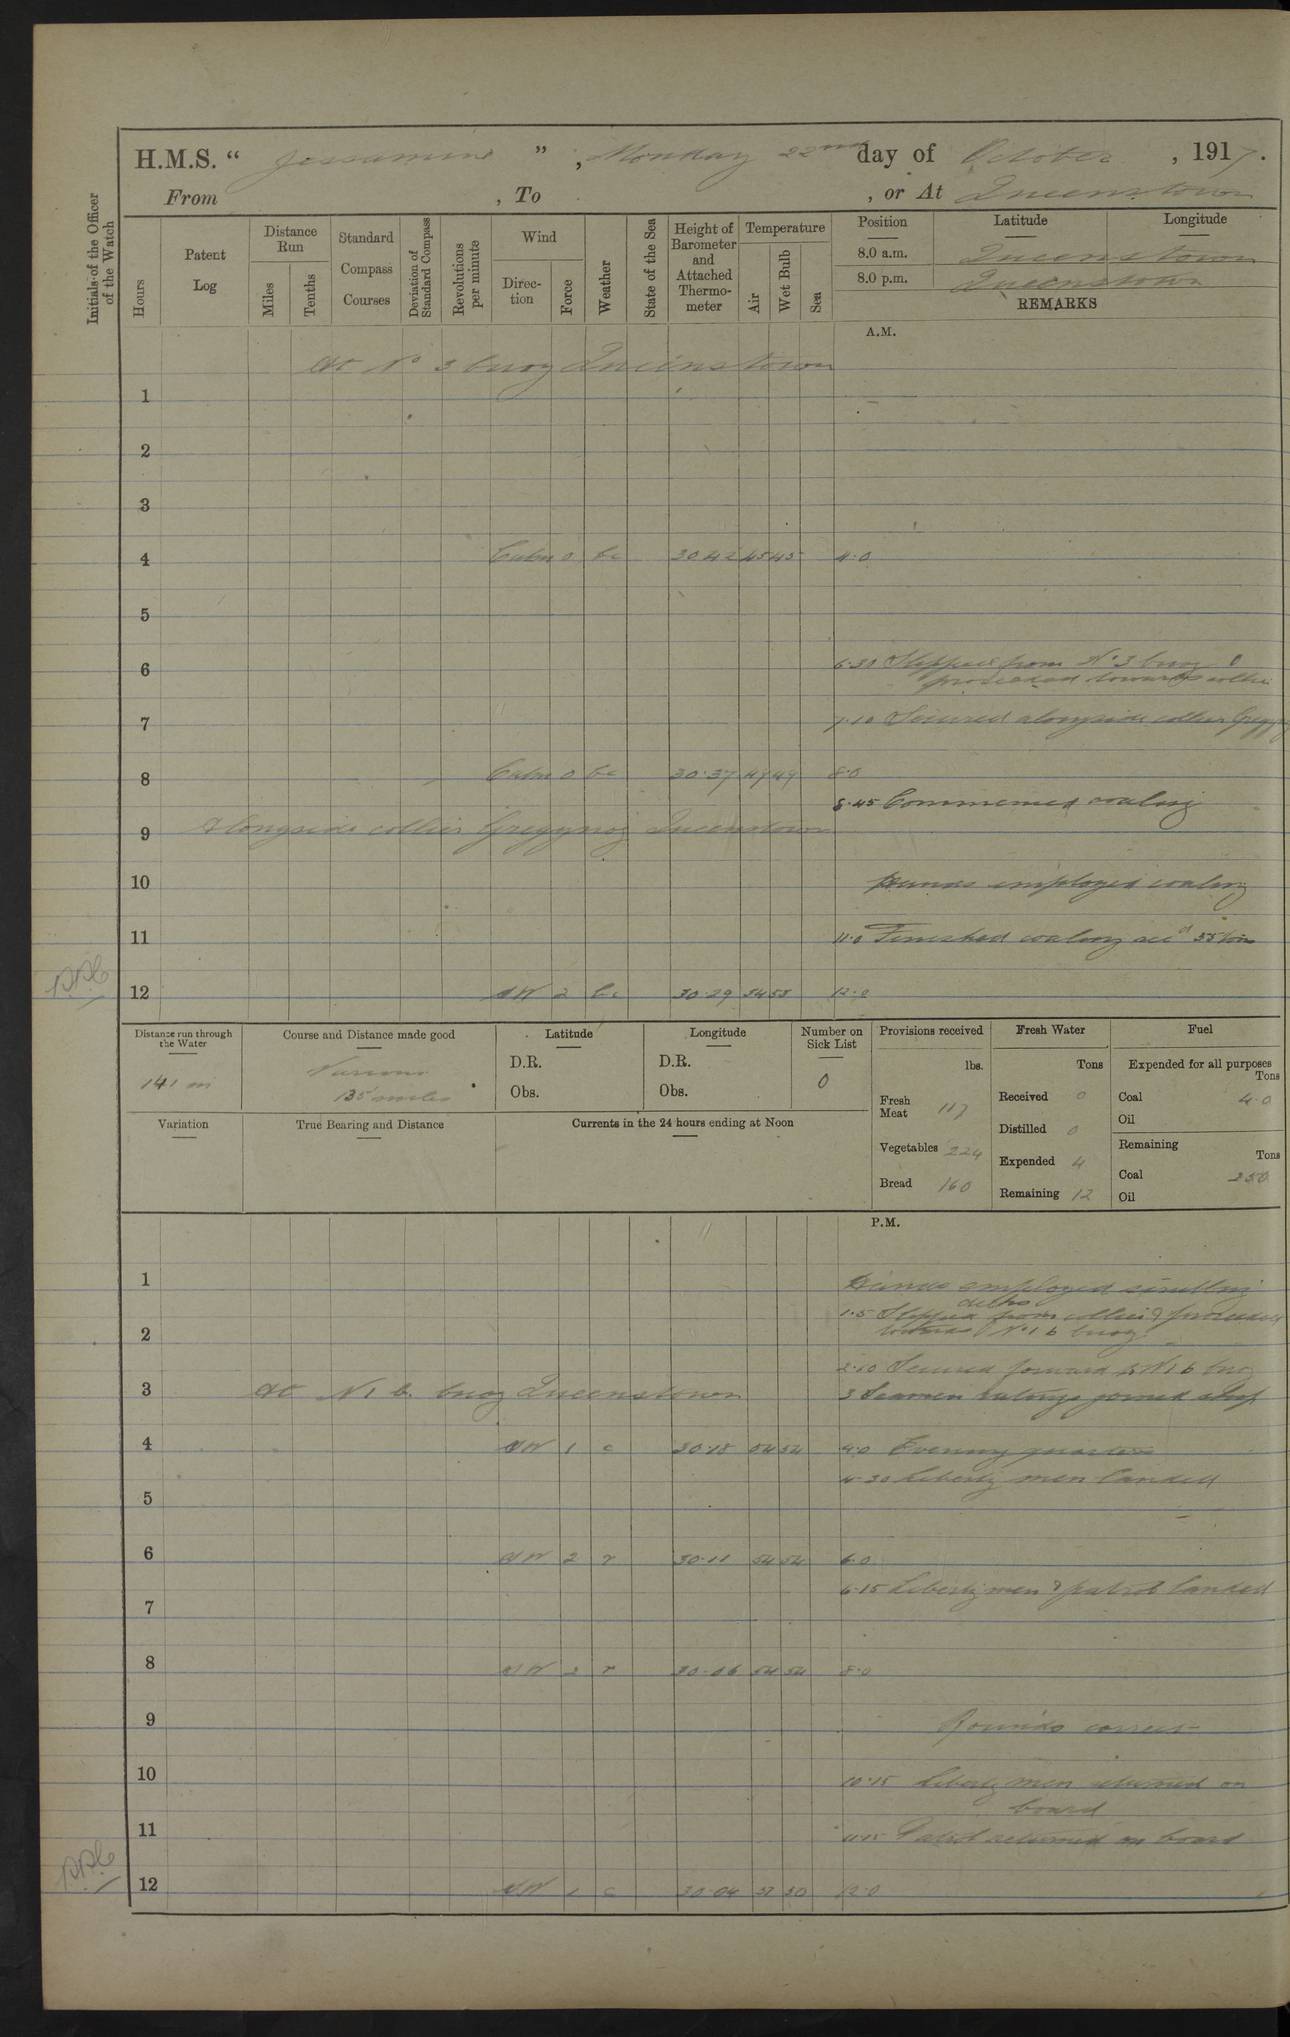 H.M.S. “ Jessamine ” , Monday 22nd day of October , 1917.
From , To , or At Queenstown
Initials of the Officer of the Watch
Hours
Patent Log
Distance Run
Miles
Tenths
Standard Compass Courses
Deviation of Standard Compass
Revolutions per minute
Wind
Direction
Force
Weather
State of the Sea
Height of Barometer and Attached Thermometer
Temperature
Air
Wet Bulb
Sea
Position Latitude Longitude
8.0 a.m. Queenstown
8.0 p.m. Queenstown
REMARKS
A.M.
At No 3 buoy Queenstown
1
2
3
4 Calm 0 bc 30.42 45 45 4.0
5
6 6.30 Slipped from No 3 buoy &
proceeded towards collier
7 7.10 Secured alongside collier
8 Calm 0 bc 30.37 49 49 8.0
8.45 Commenced coaling
9 Alongside collier Gregynog Queenstown
10 Hands employed coaling
11 11.0 Finished coaling recd 55 tons
12 NW 2 bc 30.29 54 53 12.0
Distance run through the Water
141 m
Course and Distance made good
Various
135 miles
Latitude
D.R.
Obs.
Longitude
D.R.
Obs.
Number on Sick List
0
Provisions received
lbs.
Fresh Meat 117
Vegetables 224
Bread 160
Fresh Water
Tons
Received 0
Distilled 0
Expended 4
Remaining 12
Fuel
Expended for all purposes
Tons
Coal 4.0
Oil
Remaining
Tons
Coal 250
Oil
Variation
True Bearing and Distance
Currents in the 24 hours ending at Noon
P.M.
1 Hands employed
1.5 Slipped from collier & proceeded
2 towards No 1 b buoy
2.10 Secured forward to No 1 b buoy
3 At No 1 b. buoy Queenstown 3 Seamen ratings joined ship
4 NW 1 c 30.18 54 52 4.0 Evening quarters
4.30 Liberty men landed
5
6 NW 2 r 30.11 54 54 6.0
6.15 Liberty men & patrol landed
7
8 NW 2 r 30.06 54 54 8.0
9 Rounds correct
10 10.15 Liberty men returned on
board
11 11.15 Patrol returned on board
12 NW 1 c 30.04 50 12.0